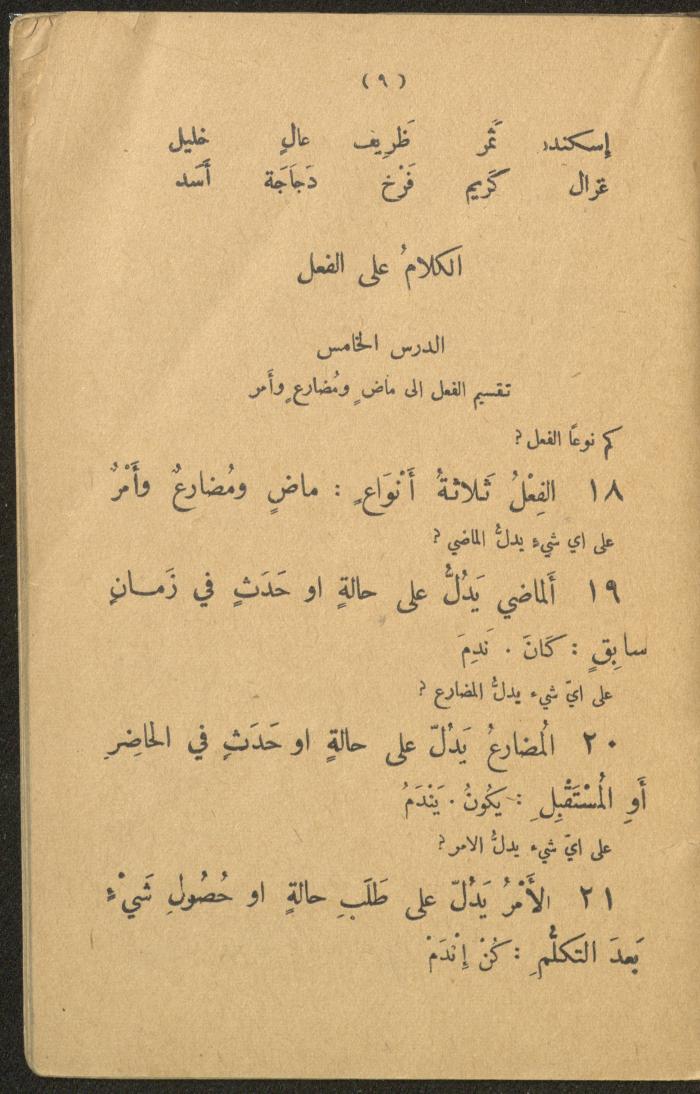 ( ٩ )
إسكندر ثَمَر ظَرِيف عالٍ خليل
غزال كَرِيم فَرْخ دَجَاجَة أَسَد
الكلامُ على الفعل
الدرس الخامس
تقسيم الفعل الى ماضٍ ومُضارعٍ وأَمر
كم نوعًا الفعل ؟
١٨ الفِعْلُ ثَلاثةُ أَنْوَاعٍ : ماضٍ ومُضارعٌ وأَمْرٌ
على اي شيءٍ يدلُّ الماضي ؟
١٩ أَلماضي يَدُلُّ على حالةٍ او حَدَثٍ في زَمـانٍ
سابِقٍ : كَانَ . نَدِمَ
على ايّ شيء يدلُّ المضارع ؟
٢٠ المُضارعُ يَدُلّ على حالةٍ او حَدَثٍ في الحاضِرِ
أَوِ المُسْتَقْبِلِ : يَكُونُ . يَنْدَمُ
على ايّ شيء يدلُّ الامر ؟
٢١ الأَمْرُ يَدُلّ على طَلَبِ حالةٍ او حُصُولِ شَيْءٍ
بَعدَ التكلُّمِ : كُنْ إِنْدَمْ